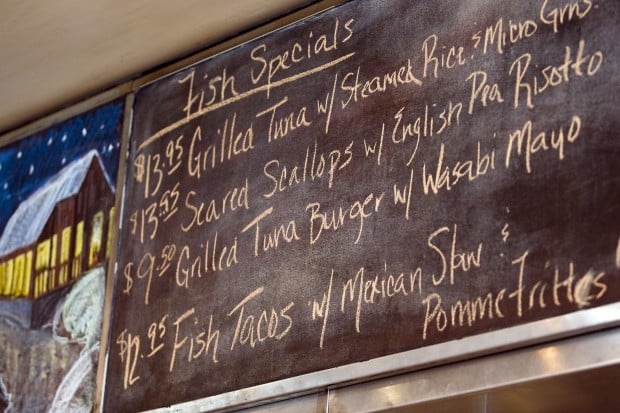 Fish Specials
$13.95 Grilled Tuna w/ Steamed Rice & Micro Grns.
$13.95 Seared Scallops w/ English Pea Risotto
$9.50 Grilled Tuna Burger w/ Wasabi Mayo
$12.95 Fish Tacos w/ Mexican Slaw &
Pomme Frittes